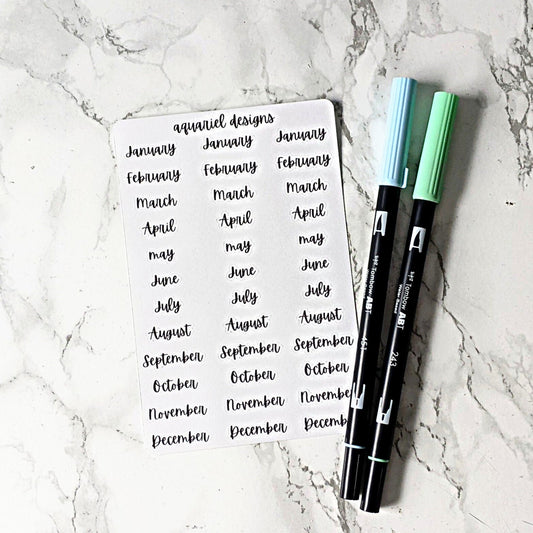 aquariel designs
January January January
February February February
March March March
April April April
may may may
June June June
July July July
August August August
September September September
October October October
November November November
December December December
Tombow ABT
451
Tombow ABT
243